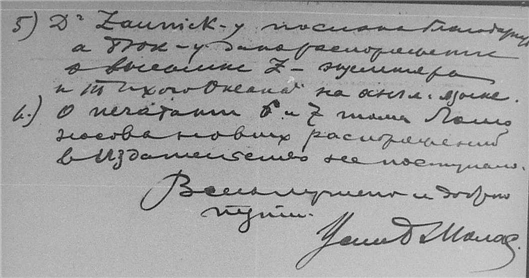 5) Dr Zaunick-у послана благодарн.
а Бок-у дано распоряжение
о высылке 2- экземпляра
и Тихого Океана на англ. языке.
6.) О печатании 6 и 7 тома Ломо
носова новых распоряжений
в Издательство не поступало.
Всего лучшего и доброго
пути.